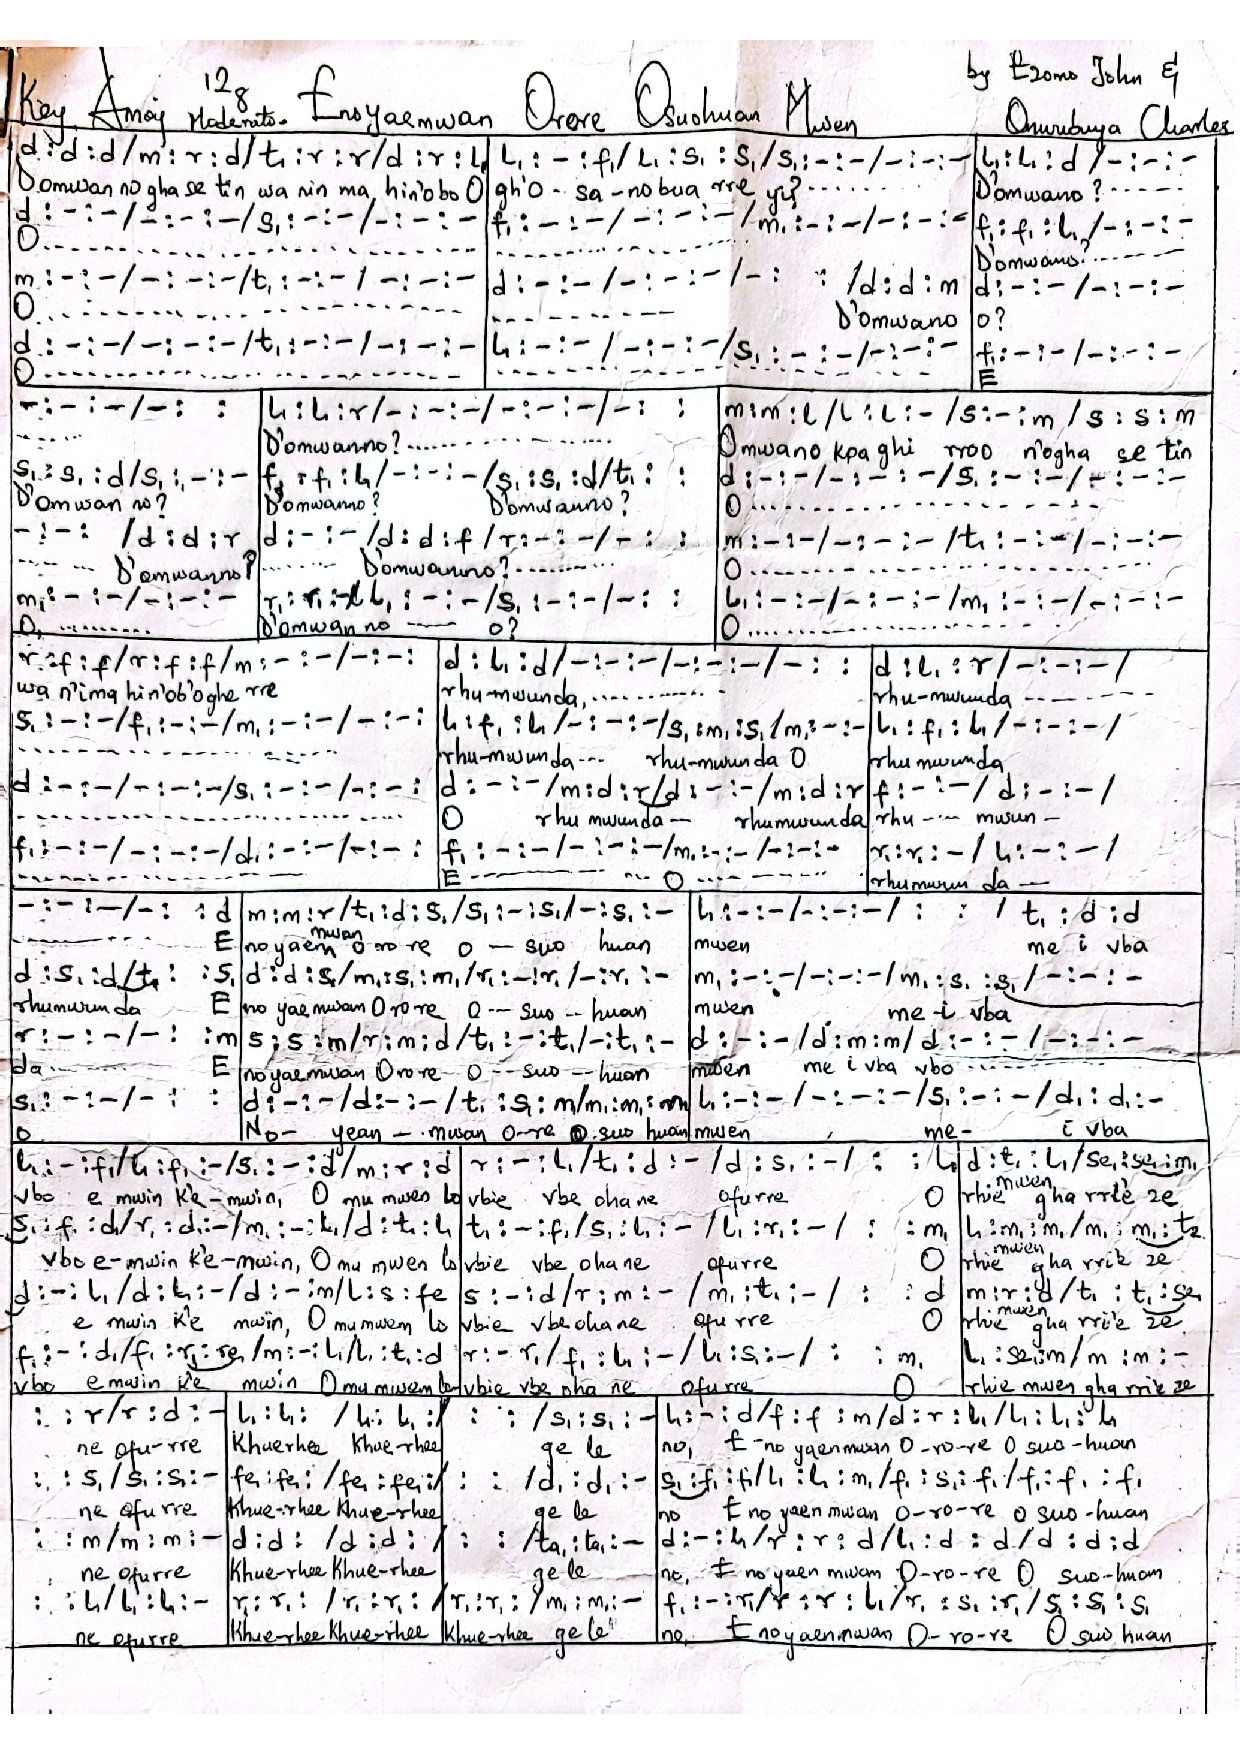 by Ezomo John &
Key Amaj 12 8 Moderato. Enoyaemwan Orore Osuohuan Mwen
Onurubuya Charles
d : d : d / m : r : d / t₁ : r : r / d : r : l₁ | l₁ : - : f₁ / l₁ : s₁ : s₁ / s₁ : - : - / - : - : - | l₁ : l₁ : d / - : - : -
D'omwan no gha se tin wa nin ma hin'obo O | gh'O - sa - nobua rre yi? | D'omwano?
d : - : - / - : - : - / s₁ : - : - / - : - : - | f₁ : - : - / - : - : - / m₁ : - : - / - : - : - | f₁ : f₁ : l₁ / - : - : -
O | D'omwano?
m : - : - / - : - : - / t₁ : - : - / - : - : - | d : - : - / - : - : - / - : : / d : d : m | d : - : - / - : - : -
O | D'omwano | o?
d : - : - / - : - : - / t₁ : - : - / - : - : - | l₁ : - : - / - : - : - / s₁ : - : - / - : - : - | f₁ : - : - / - : - : -
O | E
- : - : - / - : : | l₁ : l₁ : r / - : - : - / - : - : - / - : : | m : m : l / l : l : - / s : - : m / s : s : m
D'omwanno? | Omwano kpa ghi rroo n'ogha se tin
s₁ : s₁ : d / s₁ : - : - | f₁ : f₁ : l₁ / - : - : - / s₁ : s₁ : d / t₁ : : | d : - : - / - : - : - / s₁ : - : - / - : - : -
D'omwan no? | D'omwanno? D'omwanno? | O
- : - : / d : d : r | d : - : - / d : d : f / r : - : - / - : : | m : - : - / - : - : - / t₁ : - : - / - : - : -
D'omwanno? | D'omwanno? | O
m₁ : - : - / - : - : - | r₁ : r₁ : l₁ : - : - / s₁ : - : - / - : : | l₁ : - : - / - : - : - / m₁ : - : - / - : - : -
O, | D'omwan no o? | O
r : f : f / r : f : f / m : - : - / - : - : | d : l₁ : d / - : - : - / - : - : - / - : : | d : l₁ : r / - : - : - /
wa n'ima hin'ob'oghe rre | rhu-mwunda, | rhu-mwunda
s₁ : - : - / f₁ : - : - / m₁ : - : - / - : - : | l₁ : f₁ : l₁ / - : - : - / s₁ : m₁ : s₁ / m₁ : - : - | l₁ : f₁ : l₁ / - : - : - /
rhu-mwunda rhu-mwunda O | rhu mwunda
d : - : - / - : - : - / s₁ : - : - / - : - : | d : - : - / m : d : r / d : - : - / m : d : r | f : - : - / d : - : - /
O rhu mwunda rhumwunda | rhu mwun -
f₁ : - : - / - : - : - / d₁ : - : - / - : - : | f₁ : - : - / - : - : - / m₁ : - : - / - : - : - | r₁ : r₁ : - / l₁ : - : - /
E O | rhumwun da
- : - : - / - : : d | m : m : r / t₁ : d : s₁ / s₁ : - : s₁ / - : s₁ : - | l₁ : - : - / - : - : - / : : / t₁ : d : d
E | noyaem mwan o ro re o - suo huan | mwen me i vba
d : s₁ : d / t₁ : : s₁ | d : d : s₁ / m₁ : s₁ : m₁ / r₁ : - : r₁ / - : r₁ : - | m₁ : - : - / - : - : - / m₁ : s₁ : s₁ / - : - : -
rhumwunda E | no yaemwan O ro re o -- suo -- huan | mwen me - i vba
r : - : - / - : : m | s : s : m / r : m : d / t₁ : - : t₁ / - : t₁ : - | d : - : - / d : m : m / d : - : - / - : - : -
da E | noyaemwan O ro re o -- suo -- huan | mwen me i vba vbo
s₁ : - : - / - : : | d : - : - / d : - : - / t₁ : s₁ : m / m₁ : m₁ : m₁ | l₁ : - : - / - : - : - / s₁ : - : - / d₁ : d₁ : -
O | No - yean - mwan o-re o suo huan | mwen me - i vba
l₁ : - : f₁ / l₁ : f₁ : - / s₁ : - : d / m : r : d | r : - : l₁ / t₁ : d : - / d : s₁ : - / : : l₁ | d : t₁ : l₁ / se₁ : se₁ : m₁
vbo e mwin k'e-mwin, O mu mwen lo | vbie vbe oha ne ofurre O | rhie mwen gha rriè ze
s₁ : f₁ : d₁ / r₁ : d₁ : - / m₁ : - : l₁ / d : t₁ : l₁ | t₁ : - : f₁ / s₁ : l₁ : - / l₁ : r₁ : - / : : m₁ | l₁ : m₁ : m₁ / m₁ : m₁ : t₂
vbo e-mwin k'e-mwin, O mu mwen lo | vbie vbe oha ne ofurre O | rhie mwen gha rriè ze
d : - : l₁ / d : l₁ : - / d : - : m / l : s : fe | s : - : d / r : m : - / m₁ : t₁ : - / : : d | m : r : d / t₁ : t₁ : se₁
e mwin k'e mwin, O mu mwem lo | vbie vbe oha ne ofu rre O | rhie mwen gha rriè ze
f₁ : - : d₁ / f₁ : r₁ : re₁ / m : - : l₁ / l₁ : t₁ : d | r : - r₁ / f₁ : l₁ : - / l₁ : s₁ : - / : : m₁ | l₁ : se₁ : m / m : m : -
vbo e mwin k'e mwin O mu mwem lo | vbie vbe oha ne ofurre O | rhie mwen gha rriè ze
: : r / r : d : - | l₁ : l₁ : / l₁ : l₁ : / : : / s₁ : s₁ : - | l₁ : - : d / f : f : m / d : r : l₁ / l₁ : l₁ : l₁
ne ofu-rre | Khuerhee Khue-rhee ge le | no, E-no yaenmwan O-ro-re O suo-huan
: : s₁ / s₁ : s₁ : - | fe₁ : fe₁ : / fe₁ : fe₁ : / : : / d₁ : d₁ : - | s₁ : f₁ : f₁ / l₁ : l₁ : m₁ / f₁ : s₁ : f₁ / f₁ : f₁ : f₁
ne ofu rre | Khue-rhee Khue-rhee ge le | no E no yaen mwan O-ro-re O suo-huan
: : m / m : m : - | d : d : / d : d : / : : / ta₁ : ta₁ : - | d : - : l₁ / r : r : d / l₁ : d : d / d : d : d
ne ofurre | Khue-rhee Khue-rhee ge le | no, E no yaen mwan O-ro-re O suo-huan
: : l₁ / l₁ : l₁ : - | r₁ : r₁ : / r₁ : r₁ : / r₁ : r₁ : / m₁ : m₁ : - | f₁ : - : r₁ / r : r : l₁ / r₁ : s₁ : r₁ / s₁ : s₁ : s₁
ne ofurre | Khue-rhee Khue-rhee Khue-rhee ge le | no, E noyaenmwan O-ro-re O suo huan